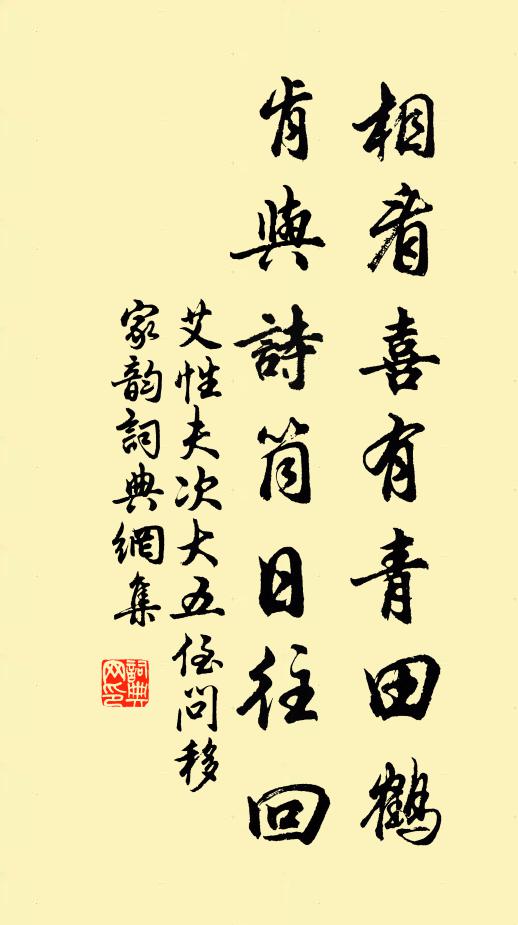 相看喜有青田鶴
肯與詩筒日往回
艾性夫次大五侄問移
家韵詞典網集
詞典网印